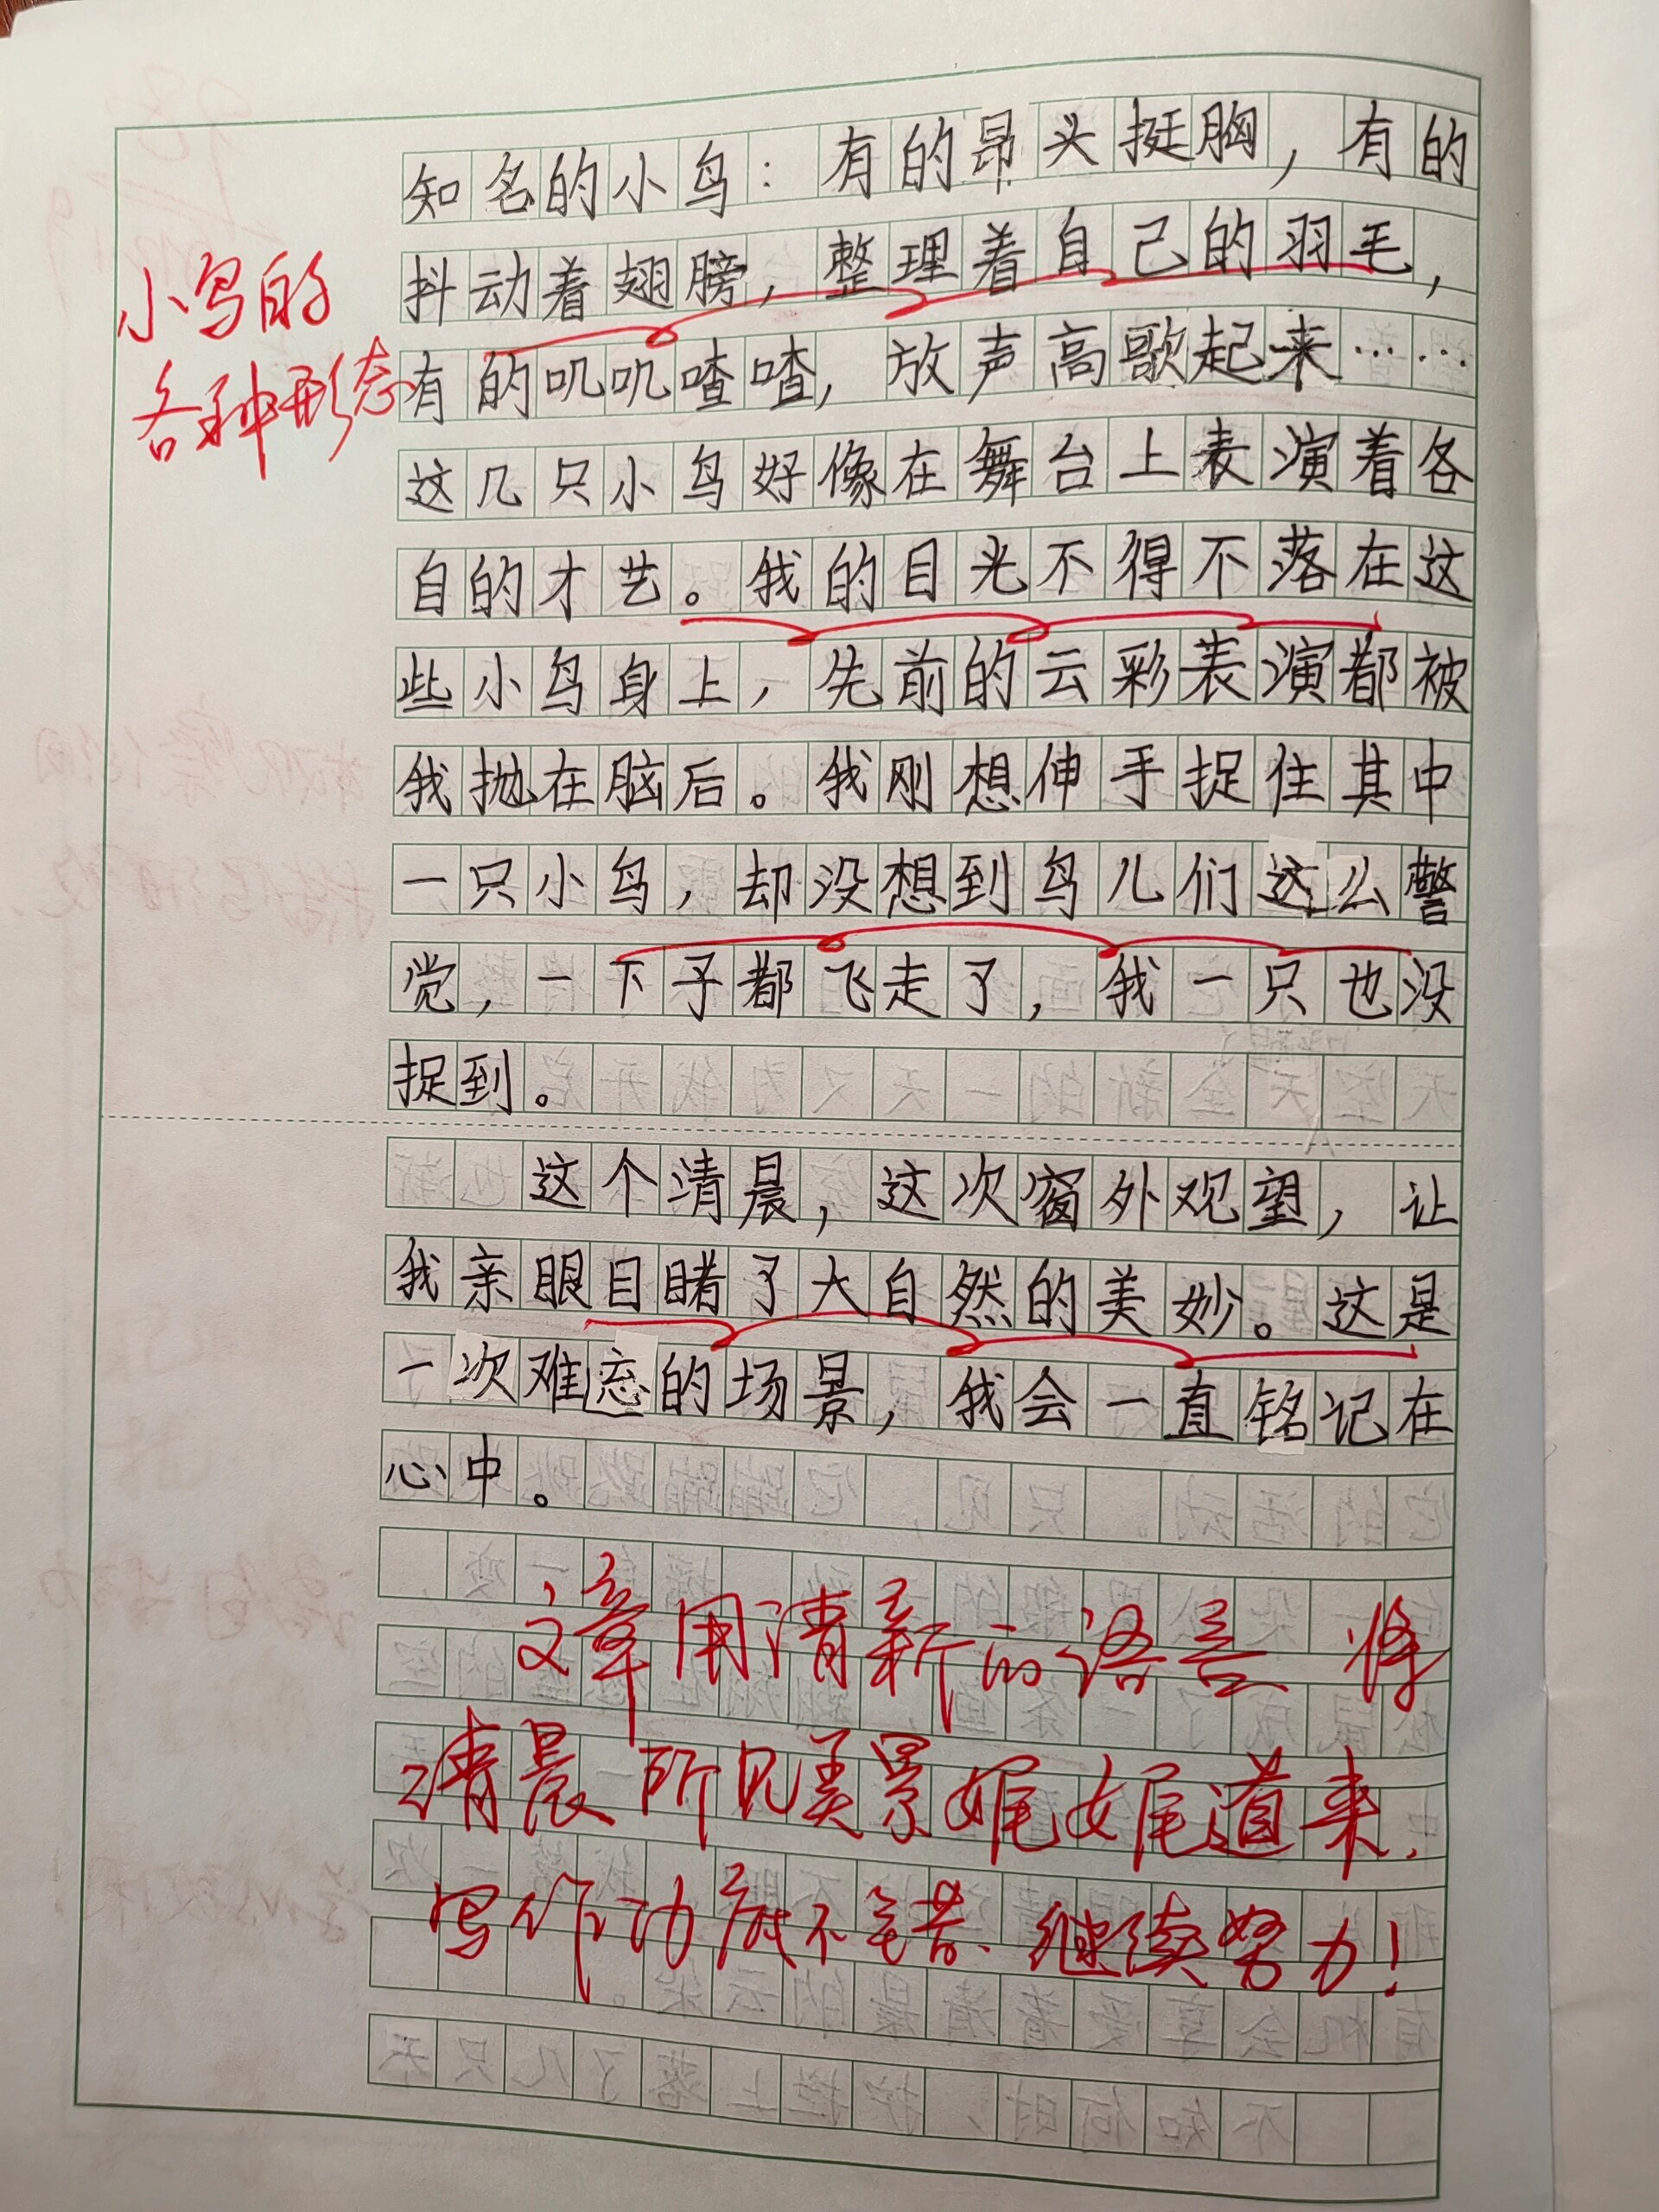 知名的小鸟：有的昂头挺胸，有的
抖动着翅膀，整理着自己的羽毛，
小鸟的
各种形态
有的叽叽喳喳，放声高歌起来……
这几只小鸟好像在舞台上表演着各
自的才艺。我的目光不得不落在这
些小鸟身上，先前的云彩表演都被
我抛在脑后。我刚想伸手捉住其中
一只小鸟，却没想到鸟儿们这么警
觉，一下子都飞走了，我一只也没
捉到。
这个清晨，这次窗外观望，让
我亲眼目睹了大自然的美妙。这是
一次难忘的场景，我会一直铭记在
心中。
文章用清新的语言 将
清晨所见美景娓娓道来，
写作功底不错、继续努力！